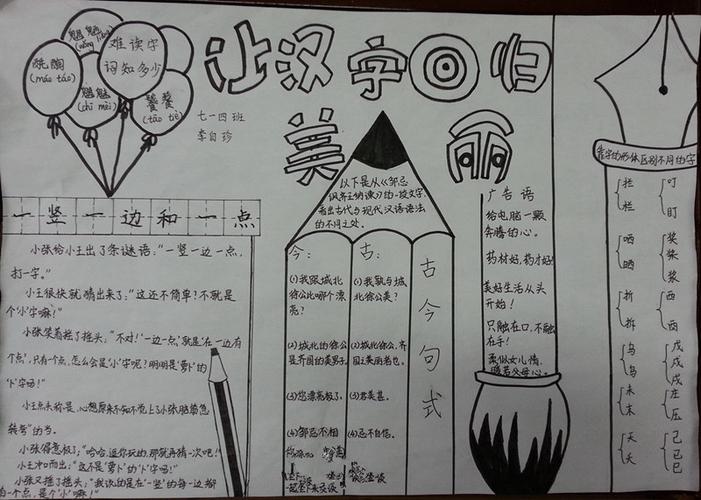 让汉字回归
美丽
七一四班
魍魉
难读字
词知多少
(máo táo)
魑魅
(chī mèi)
饕餮
(tāo tiè)
一竖一边和一点
小张给小王出了条谜语：“一竖一边一点，
打一字。”
小王很快就猜出来了：“这还不简单？不就是
个‘小’字嘛！”
小张笑着摇了摇头：“不对！‘一边一点’，就是在一边有
个点，只有一个点，怎么会是‘小’字呢？明明是‘萝卜’的
‘卜’字嘛！”
小张得意极了：“哈哈，逗你玩的，那就再猜一次吧！”
小王冲口而出：“这不是‘萝卜’的‘卜’字吗！”
小张又摇了摇头：
一个点，是个‘小’嘛！
以下是从《邹忌
讽齐王纳谏》的一段文字，
看出古代与现代汉语语法
的不同之处。
今：
(1)我跟城北
徐公比哪个漂
亮？
(2)城北的徐公
是齐国的美男子。
(3)您漂亮极了。
(4)邹忌不相
古：
(1)我孰与城
北徐公美？
(2)城北徐公，齐
国之美丽者也。
(3)君美甚。
(4)忌不自信。
古今句式
广告语
给电脑一颗
奔腾的心。
药材好，药才好！
美好生活从头
开始！
只融在口，不融
在手！
柔似女儿情，
暖若父母心。
靠字的形体区别不同的字
拦 栏
晒 晒
折 拆
乌 鸟
未 末
天 夭
叮 盯
奖 桨 浆
西
戊 戌 戍
庄 压
己 已 巳